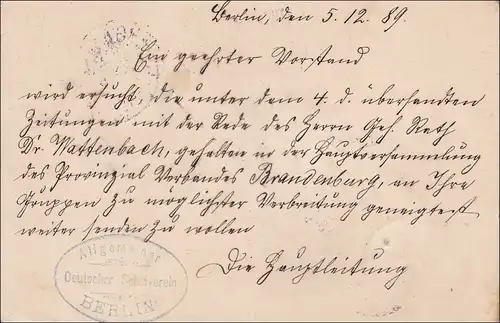 Berlin, den 5. 12. 89.
Ein geehrter Vorstand
wird ersucht, die unter dem 4. d. übersandten
Zeitungen mit der Rede des Herrn Geh. Rath
Dr. Wattenbach, gehalten in der Hauptversammlung
des Provinzial Verbandes Brandenburg, an Ihre
Gruppen zu möglichster Verbreitung geneigtest
weiter senden zu wollen
Die Hauptleitung
Allgemeiner
Deutscher Schulverein
BERLIN